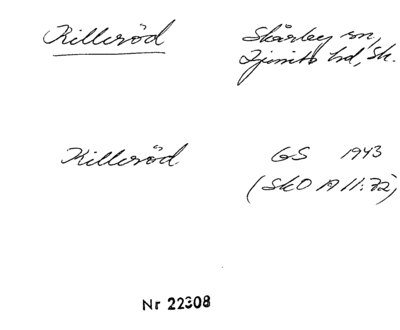 Killeröd Skårby sn,
Ljunits hd, Sk.
Killeröd GS 1943
(SkO A 11:72)
Nr 22308